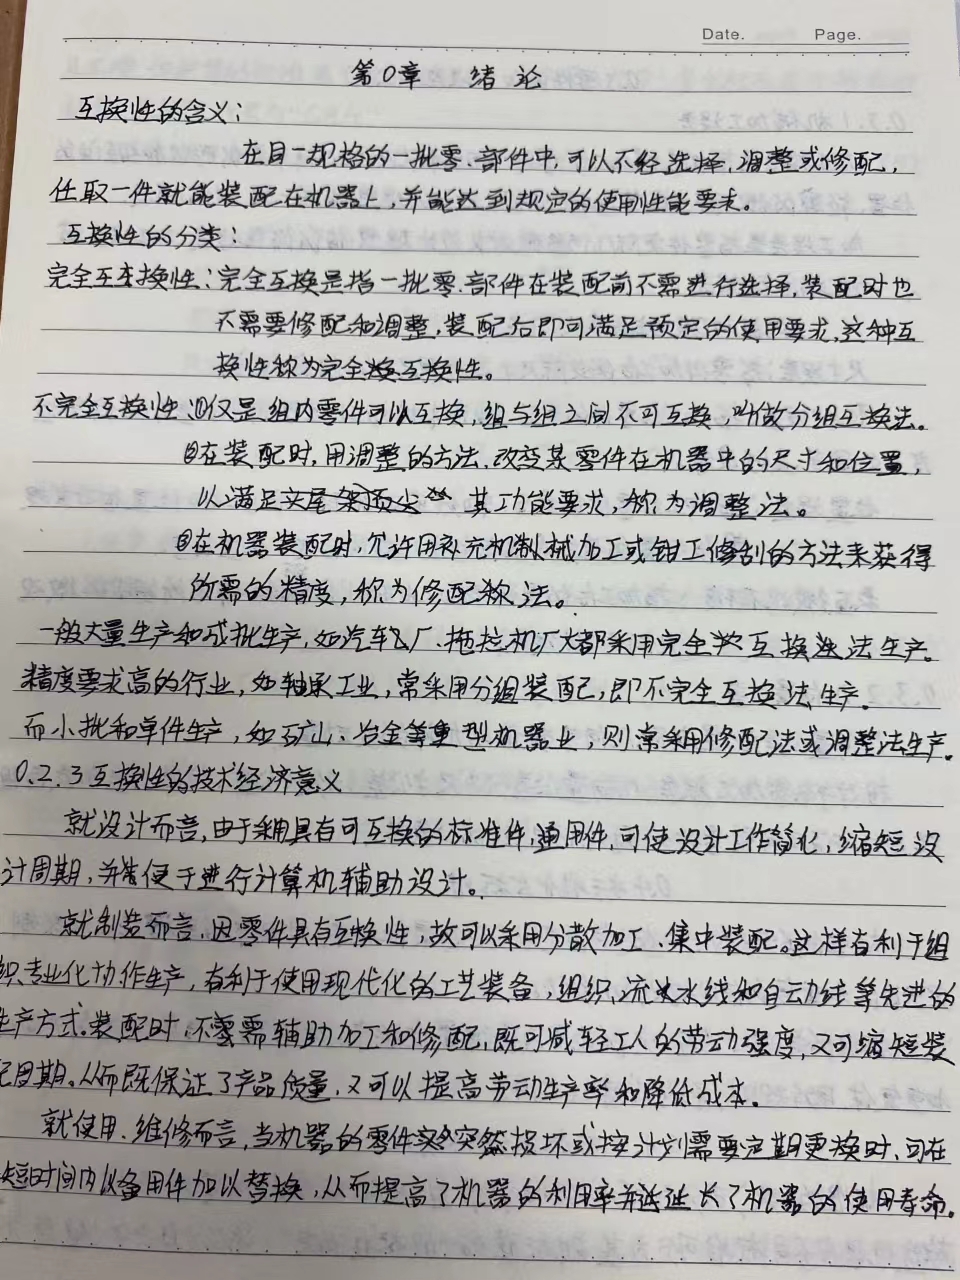 Date. Page.
第0章 绪论
互换性的含义：
在同一规格的一批零、部件中，可以不经选择、调整或修配，
任取一件就能装配在机器上，并能达到规定的使用性能要求。
互换性的分类：
完全互换性：完全互换是指一批零、部件在装配前不需进行选择，装配时也
不需要修配和调整，装配后即可满足预定的使用要求，这种互
换性称为完全互换性。
不完全互换性：①仅是组内零件可以互换，组与组之间不可互换，叫做分组互换法。
②在装配时，用调整的方法，改变某零件在机器中的尺寸和位置，
以满足其功能要求，称为调整法。
③在机器装配时，允许用补充机械加工或钳工修刮的方法来获得
所需的精度，称为修配法。
一般大量生产和成批生产，如汽车厂、拖拉机厂大都采用完全互换法生产。
精度要求高的行业，如轴承工业，常采用分组装配，即不完全互换法生产。
而小批和单件生产，如矿山、冶金等重型机器业，则常采用修配法或调整法生产。
0.2.3互换性的技术经济意义
就设计而言，由于采用具有可互换的标准件，通用件，可使设计工作简化，缩短设
计周期，并便于进行计算机辅助设计。
就制造而言，因零件具有互换性，故可以采用分散加工、集中装配。这样有利于组
织专业化协作生产，有利于使用现代化的工艺装备，组织流水线和自动线等先进的
生产方式。装配时，不需辅助加工和修配，既可减轻工人的劳动强度，又可缩短装
配周期。从而既保证了产品质量，又可以提高劳动生产率和降低成本。
就使用、维修而言，当机器的零件突然损坏或按计划需要定期更换时，可在
短时间内以备用件加以替换，从而提高了机器的利用率并延长了机器的使用寿命。